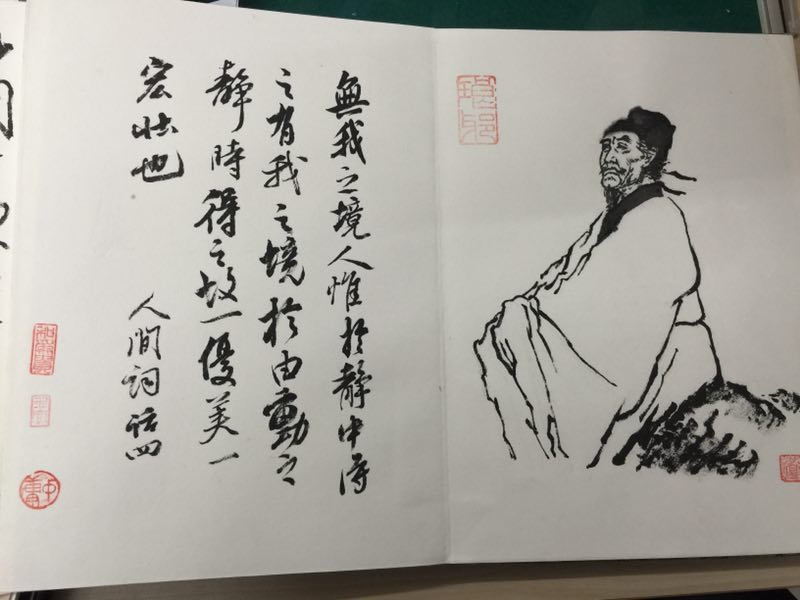 無我之境人惟於靜中得
之有我之境於由動之
靜時得之故一優美一
宏壯也
人間詞話四
琅邪